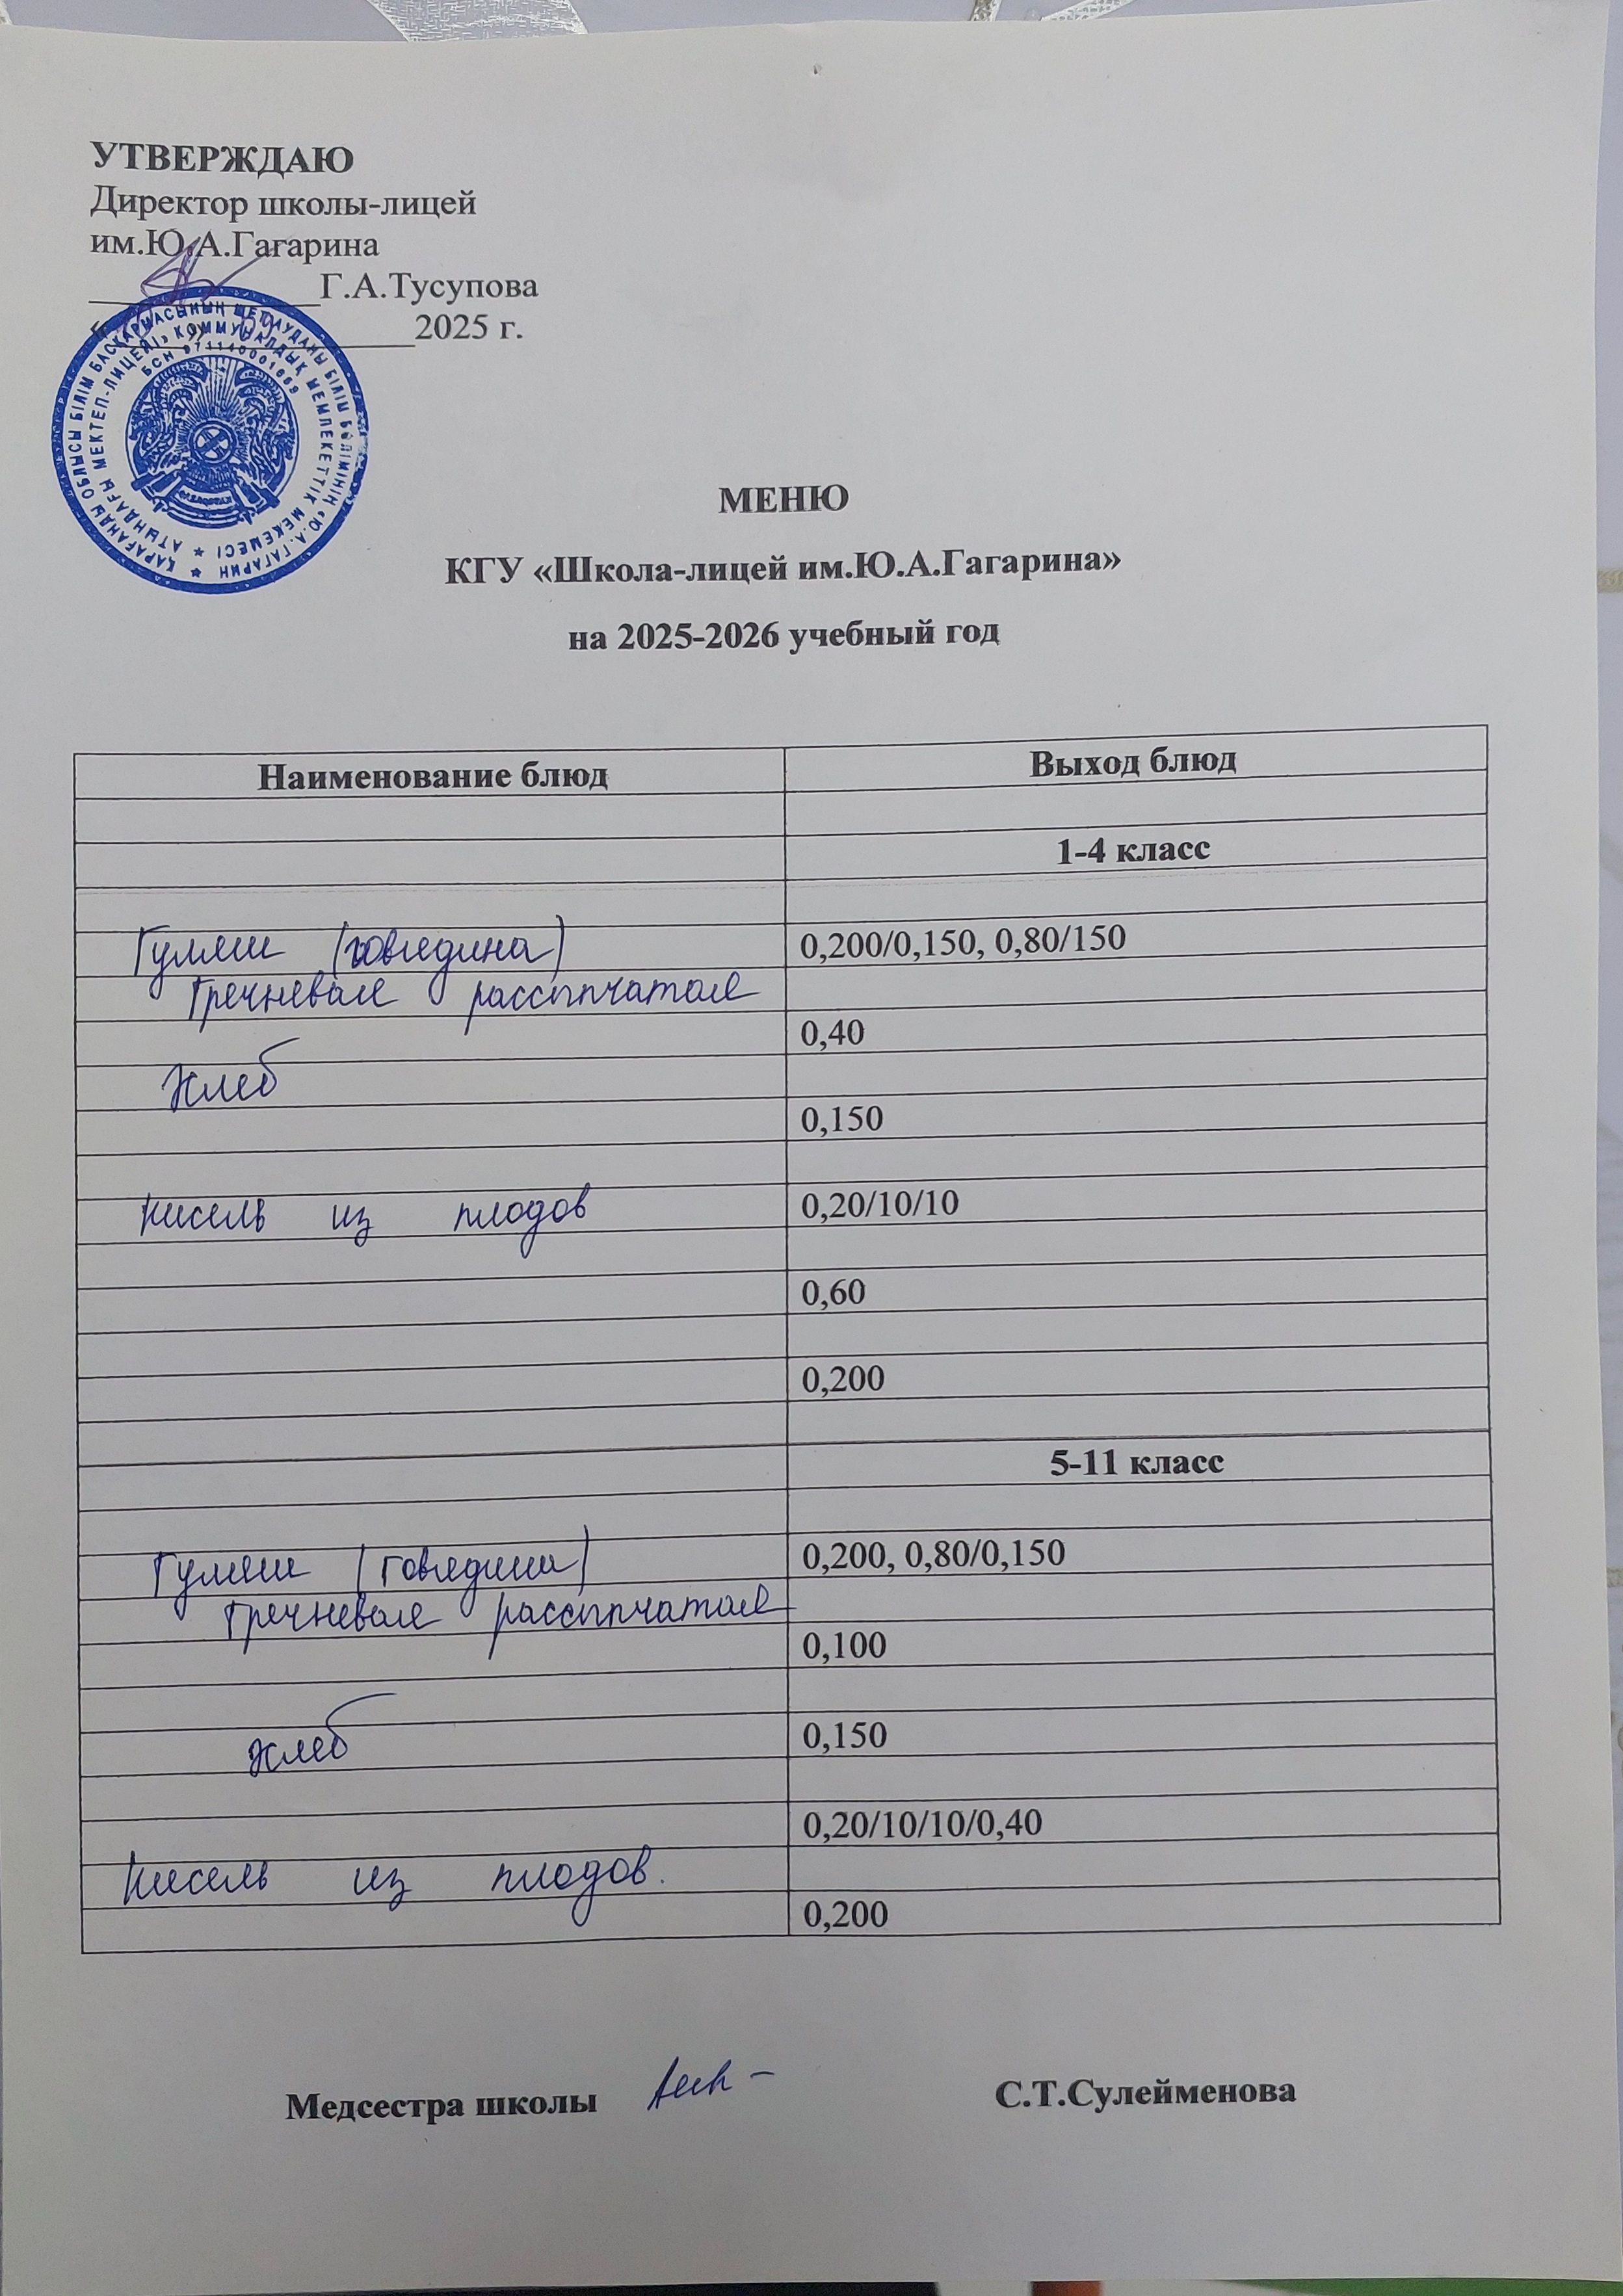 УТВЕРЖДАЮ
Директор школы-лицей
им.Ю.А.Гагарина
Г.А.Тусупова
2025 г.
ҚАРАҒАНДЫ ОБЛЫСЫ БІЛІМ БАСҚАРМАСЫНЫҢ ШЕТ АУДАНЫ БІЛІМ БӨЛІМІНІҢ «Ю.А. ГАГАРИН
АТЫНДАҒЫ МЕКТЕП-ЛИЦЕЙІ» КОММУНАЛДЫҚ МЕМЛЕКЕТТІК МЕКЕМЕСІ
БСН
МЕНЮ
КГУ «Школа-лицей им.Ю.А.Гагарина»
на 2025-2026 учебный год
Наименование блюд Выход блюд
1-4 класс
Гуляш (говядина) 0,200/0,150, 0,80/150
Гречневая рассыпчатая
0,40
Хлеб
0,150
Кисель из плодов 0,20/10/10
0,60
0,200
5-11 класс
Гуляш (говядина) 0,200, 0,80/0,150
гречневая рассыпчатая
0,100
Хлеб 0,150
0,20/10/10/0,40
Кисель из плодов.
0,200
Медсестра школы С.Т.Сулейменова